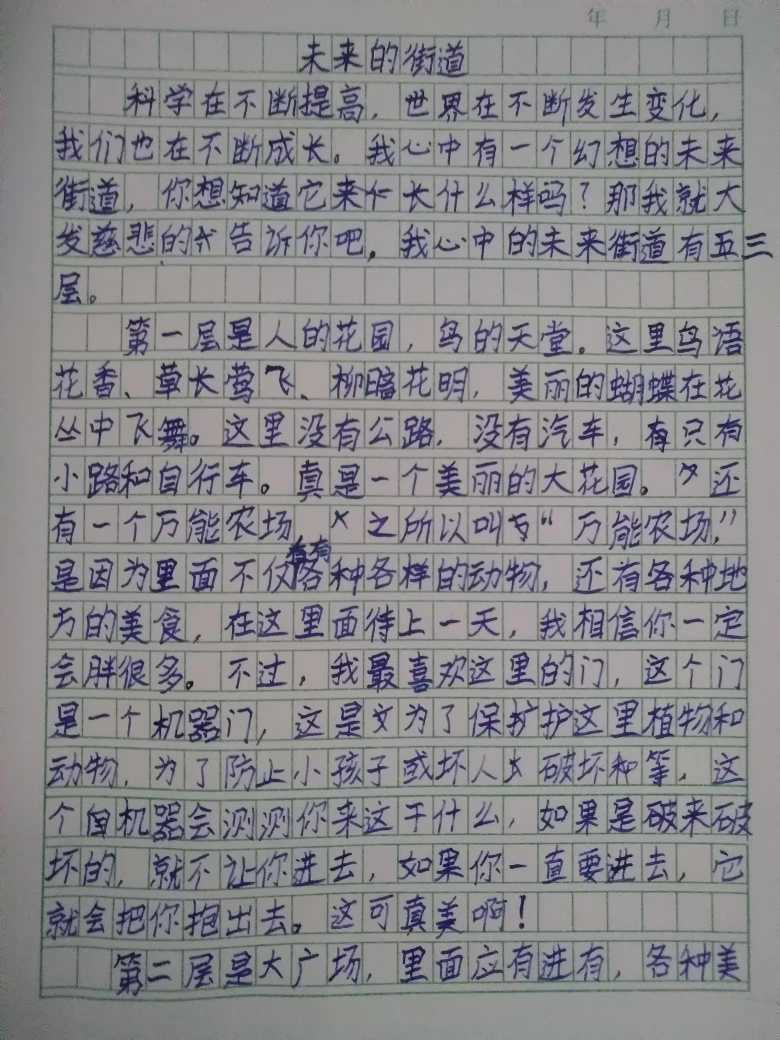 年 月 日
未来的街道
科学在不断提高，世界在不断发生变化，
我们也在不断成长。我心中有一个幻想的未来
街道，你想知道它来长什么样吗？那我就大
发慈悲的告诉你吧，我心中的未来街道有五三
层。
第一层是人的花园，鸟的天堂。这里鸟语
花香、草长莺飞、柳暗花明，美丽的蝴蝶在花
丛中飞舞。这里没有公路，没有汽车，有只有
小路和自行车。真是一个美丽的大花园。还
有一个万能农场，之所以叫“万能农场，”
是因为里面不仅有各种各样的动物，还有各种地
方的美食，在这里面待上一天，我相信你一定
会胖很多。不过，我最喜欢这里的门，这个门
是一个机器门，这是为了保护这里植物和
动物，为了防止小孩子或坏人破坏和等，这
个机器会测测你来这干什么，如果是破来破
坏的，就不让你进去，如果你一直要进去，它
就会把你抱出去。这可真美啊！
第二层是大广场，里面应有进有，各种美